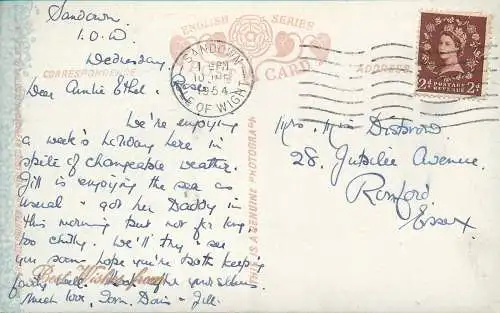 Sandown,
I.O.W
Wednesday.
ENGLISH SERIES
POST CARD
CORRESPONDENCE
ADDRESS
SANDOWN
1 - PM
10 JNE
1954
ISLE OF WIGHT
POSTAGE REVENUE
2d 2d
Dear Auntie Ethel,
We're enjoying
a week's holiday here in
spite of changeable weather.
Jill is enjoying the sea as
usual - got her Daddy in
this morning but not for long,
too chilly. We'll try & see
you soon - hope you're both keeping
fairly well.
Much love, Tom, Doris & Jill.
Best Wishes from
THIS IS A GENUINE PHOTOGRAPH
Mrs. & Miss Disbrow
28, Jubilee Avenue,
Romford,
Essex.